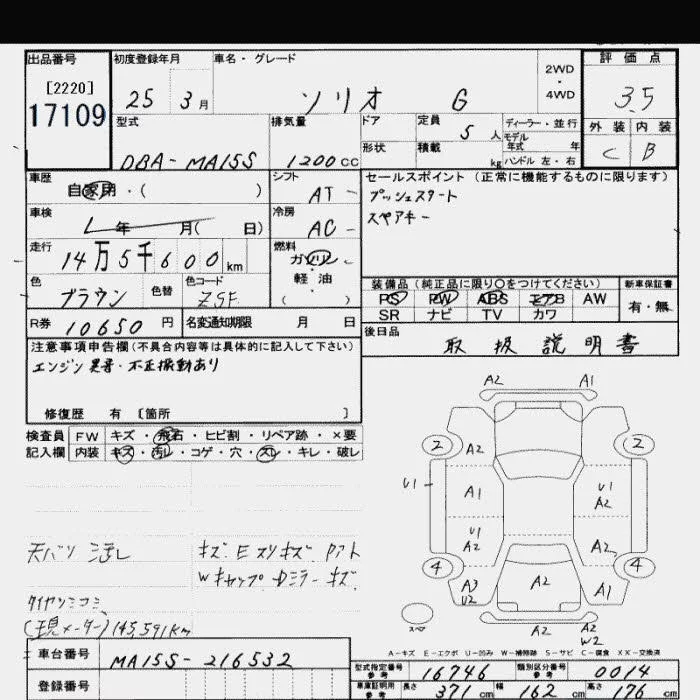 出品番号 初度登録年月 車名・グレード 2WD・4WD 評価点
[2220]
17109
25 3月 ソリオ G 3.5
型式 排気量 ドア 定員 5人 ディーラー・並行 外装 内装
モデル年式 年
形状 積載 kg ハンドル 左・右 C B
DBA-MA15S 1200cc
車歴 自家用・( ) シフト AT セールスポイント(正常に機能するものに限ります)
プッシュスタート
スペアキー
車検 年 月( 日) 冷房 AC
走行 14万5千600km 燃料 ガソリン
軽油
( )
色 ブラウン 色替 色コード ZSF
装備品(純正品に限り○をつけてください) 新車保証書
PS PW ABS エアB AW 有・無
SR ナビ TV カワ
R券 10650円 名変通知期限 月 日
後日品 取扱説明書
注意事項申告欄(不具合内容等は具体的に記入して下さい)
エンジン異音・不正振動あり
修復歴 有〔箇所 〕
検査員 FW キズ・飛石・ヒビ割・リペア跡・×要
記入欄 内装 キズ・汚レ・コゲ・穴・スレ・キレ・破レ
A2 A1
2 A2 2
U1 A1 U1 A2
U1 A2 A2
4 A3 U2 A2 A1 4
スペア A2 A2 W2
天バリ 汚レ
キズ E スリキズ
Wキャップ Dミラーキズ
(現メーター) 145,591km
A-キズ E-エクボ U-凹み W-補修跡 S-サビ C-腐食 XX-交換済
車台番号 MA15S-216532
登録番号
型式指定番号 参考 16746 類別区分番号 参考 0014
車庫証明用 参考 長さ 371cm 幅 162cm 高さ 176cm